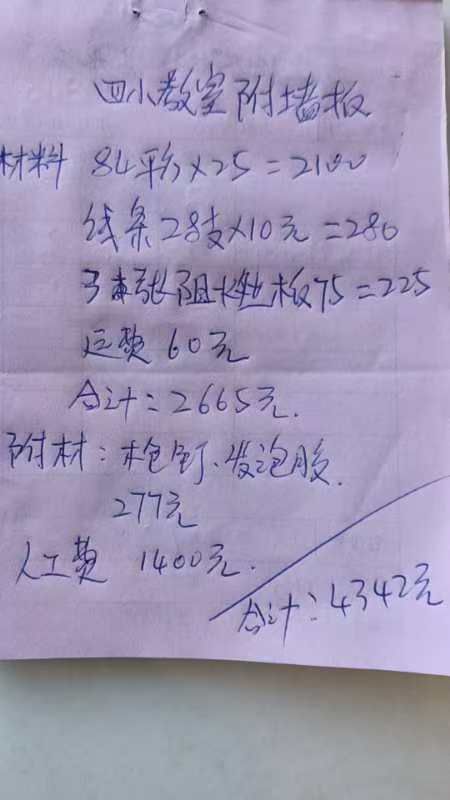 四小教室附墙板
材料 84平方×25=2100
线条28支×10元=280
3张阻燃板75=225
运费 60元
合计:2665元.
附材:枪钉、发泡胶.
277元
人工费 1400元.
合计:4342元